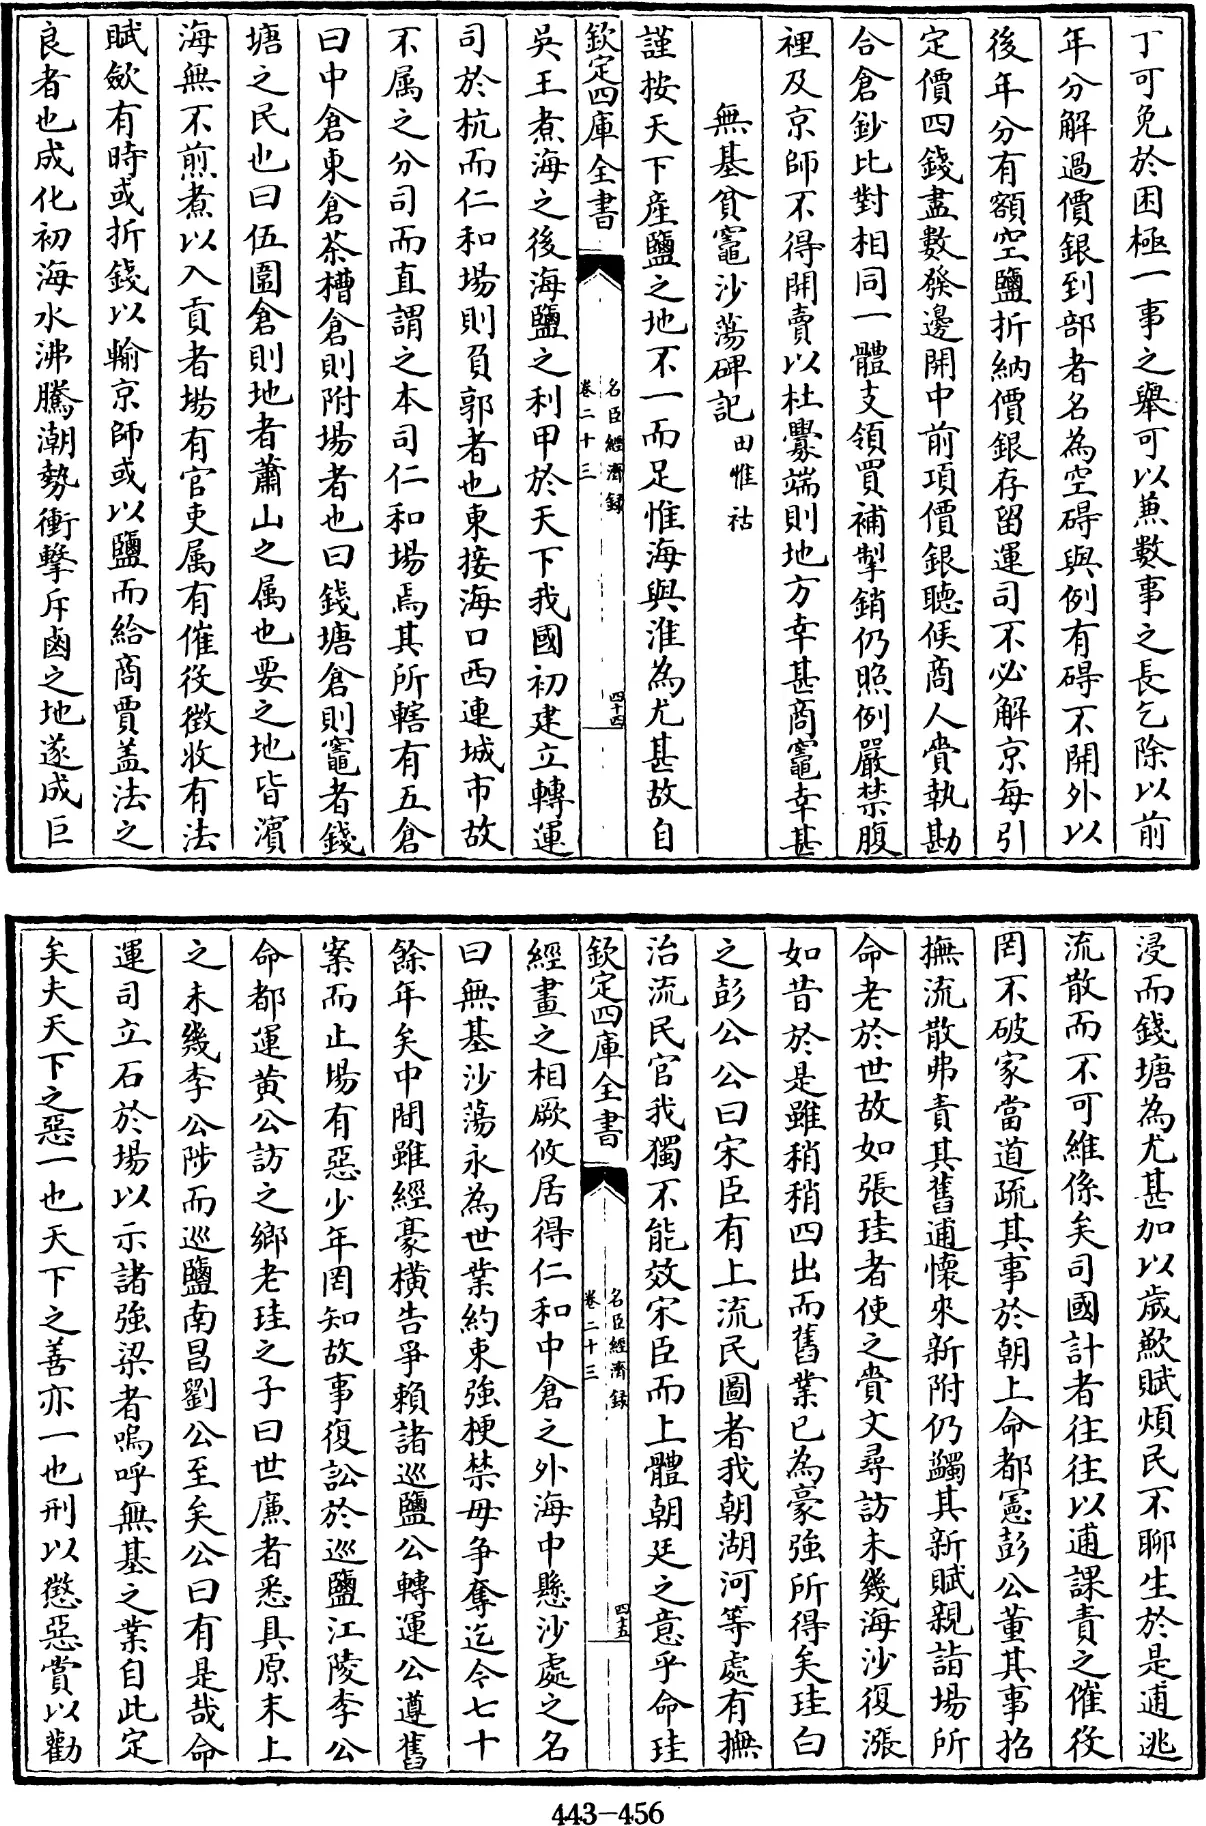 丁可免於困極一事之舉可以兼數事之長乞除以前
年分解過價銀到部者名為空碍與例有碍不開外以
後年分有額空鹽折納價銀存留運司不必解京每引
定價四錢盡數發邊開中前項價銀聽候商人賫執勘
合倉鈔比對相同一體支領買補掣銷仍照例嚴禁腹
裡及京師不得開賣以杜釁端則地方幸甚商竈幸甚
無基貧竈沙蕩碑記 田惟祜
謹按天下產鹽之地不一而足惟海與淮為尤甚故自
欽定四庫全書
名臣經濟録
卷二十三
四十四
吳王煮海之後海鹽之利甲於天下我國初建立轉運
司於杭而仁和場則負郭者也東接海口西連城市故
不属之分司而直謂之本司仁和場焉其所轄有五倉
曰中倉東倉茶槽倉則附場者也曰錢塘倉則竈者錢
塘之民也曰伍圍倉則地者蕭山之属也要之地皆濵
海無不煎煮以入貢者場有官吏属有催役徴收有法
賦歛有時或折錢以輸京師或以鹽而給商賈盖法之
良者也成化初海水沸騰潮勢衝擊斥鹵之地遂成巨
浸而錢塘為尤甚加以歲歉賦煩民不聊生於是逋逃
流散而不可維係矣司國計者往往以逋課責之催役
罔不破家當道疏其事於朝上命都憲彭公董其事招
撫流散弗責其舊逋懷來新附仍蠲其新賦親詣場所
命老於世故如張珪者使之賫文尋訪未幾海沙復漲
如昔於是雖稍稍四出而舊業已為豪強所得矣珪白
之彭公公曰宋臣有上流民圖者我朝湖河等處有撫
治流民官我獨不能效宋臣而上體朝廷之意乎命珪
欽定四庫全書
名臣經濟録
卷二十三
四十五
經畫之相厥攸居得仁和中倉之外海中懸沙處之名
曰無基沙蕩永為世業約束強梗禁毋争奪迄今七十
餘年矣中間雖經豪橫告爭賴諸巡鹽公轉運公遵舊
案而止場有惡少年罔知故事復訟於巡鹽江陵李公
命都運黄公訪之鄉老珪之子曰世㢘者悉具原末上
之未幾李公陟而巡鹽南昌劉公至矣公曰有是哉命
運司立石於場以示諸強梁者嗚呼無基之業自此定
矣夫天下之惡一也天下之善亦一也刑以懲惡賞以勸
443-456